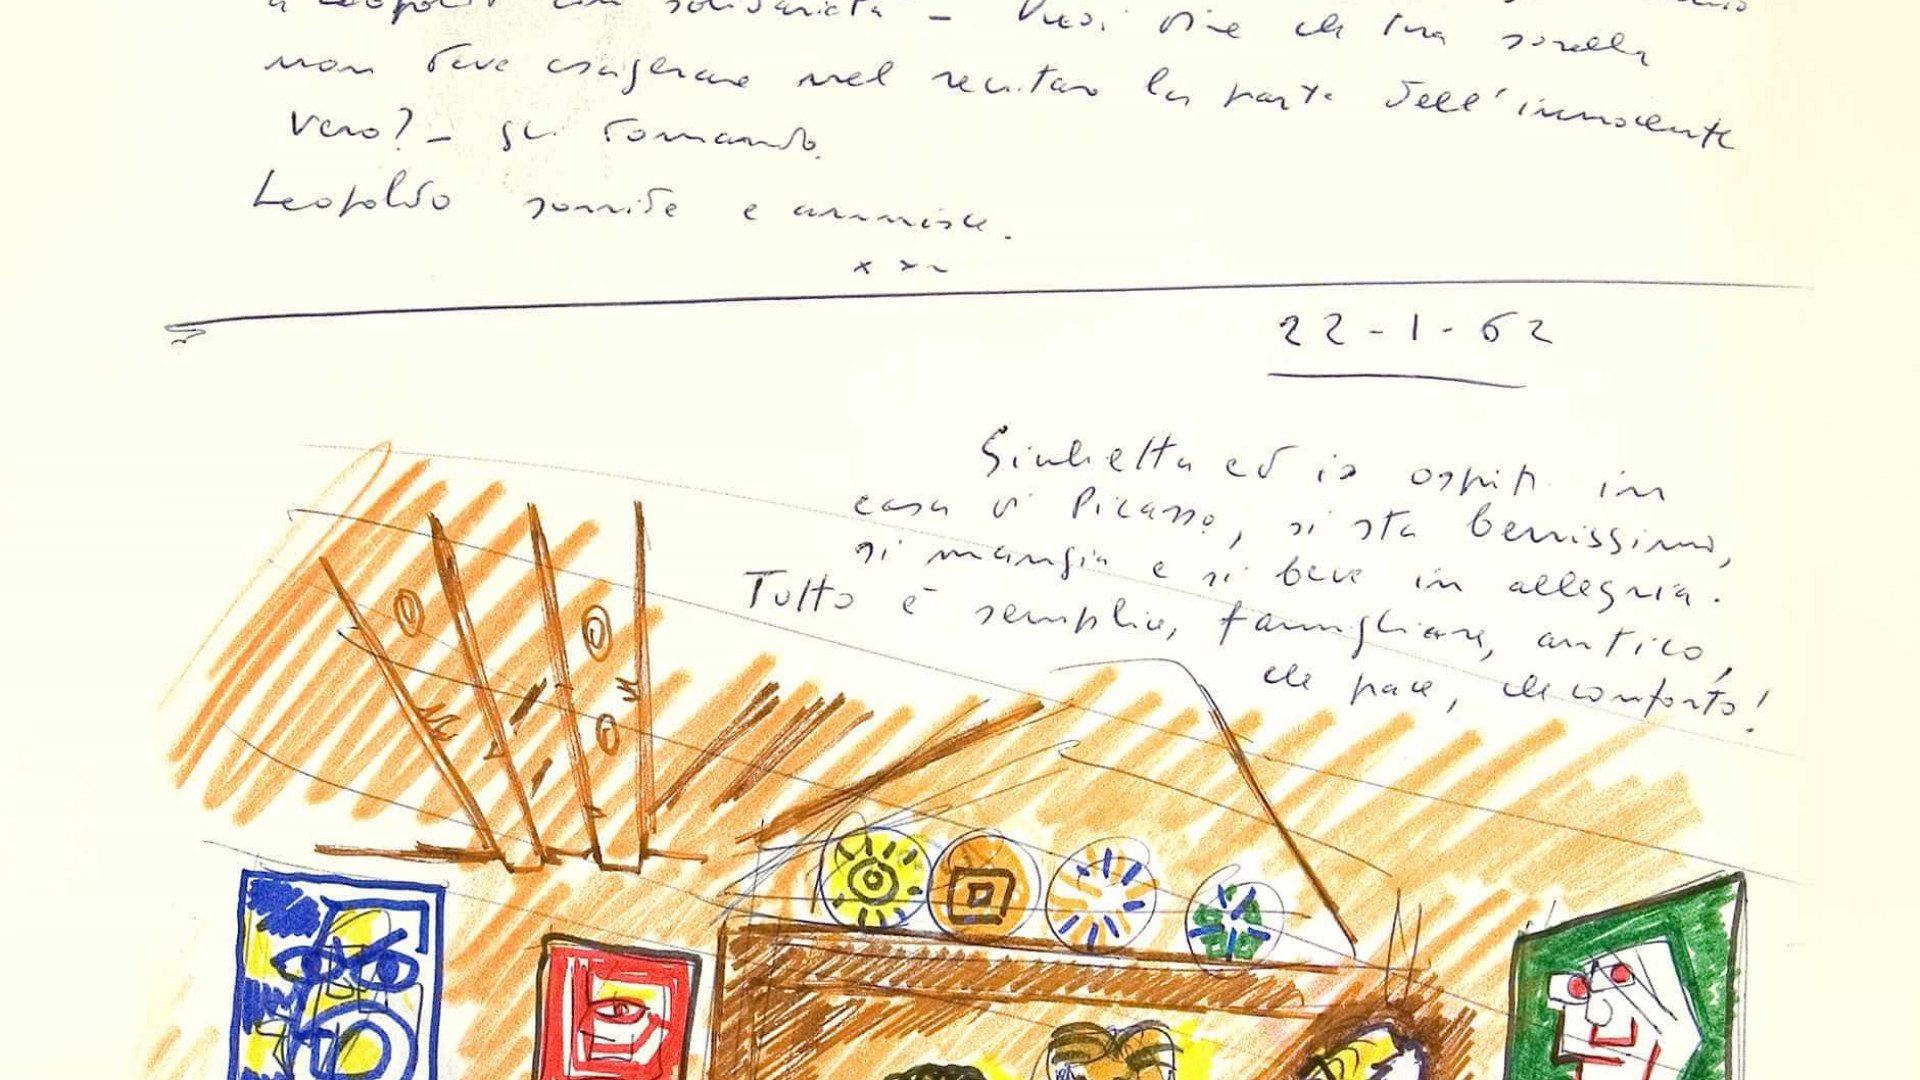 a Leopoldo con solidarietà – Vuoi dire che tua sorella
non deve esagerare nel recitare la parte dell'innocente
vero? – gli domando.
Leopoldo sorride e annuisce.
x x ~
22-1-62
Giulietta ed io ospiti in
casa di Picasso, si sta benissimo,
si mangia e si beve in allegria.
Tutto è semplice, famigliare, antico,
che pace, che conforto!